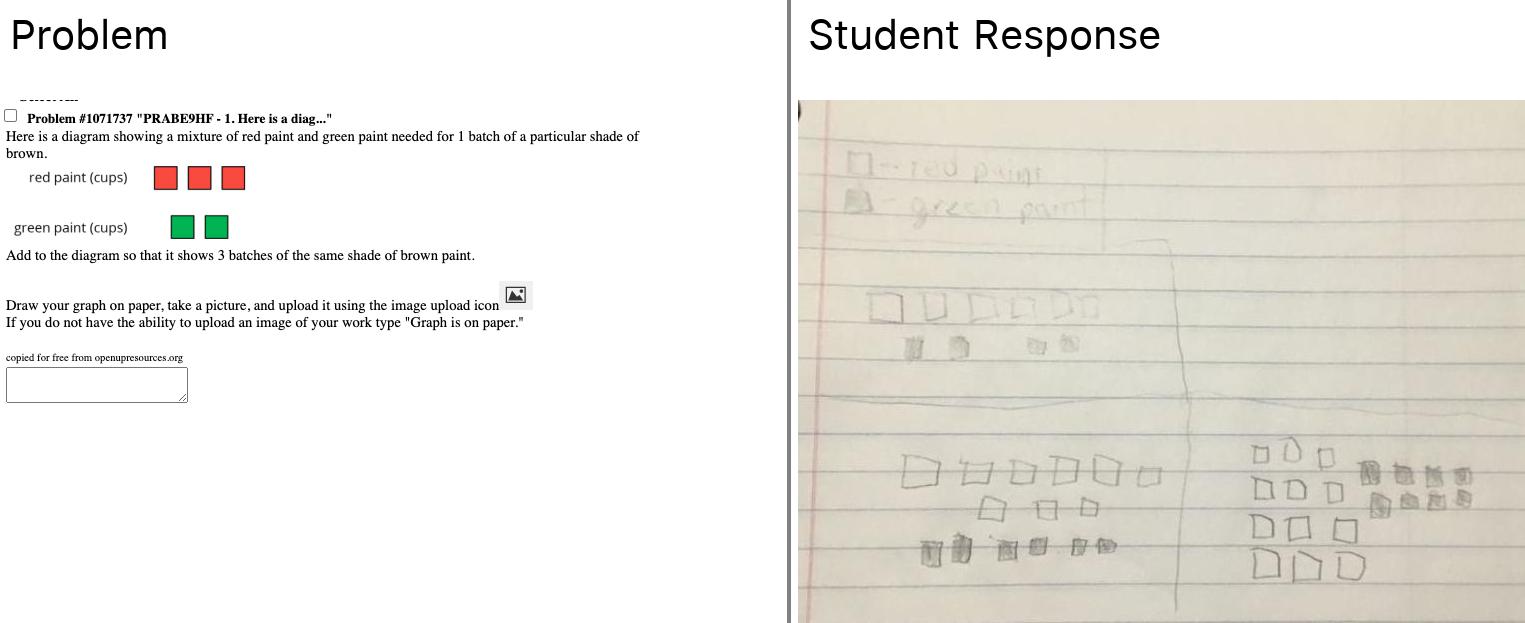 Problem
Student Response
Problem #1071737 "PRABE9HF - 1. Here is a diag..."
Here is a diagram showing a mixture of red paint and green paint needed for 1 batch of a particular shade of
brown.
red paint (cups)
green paint (cups)
Add to the diagram so that it shows 3 batches of the same shade of brown paint.
Draw your graph on paper, take a picture, and upload it using the image upload icon
If you do not have the ability to upload an image of your work type "Graph is on paper."
copied for free from openupresources.org
-- red paint
- green paint